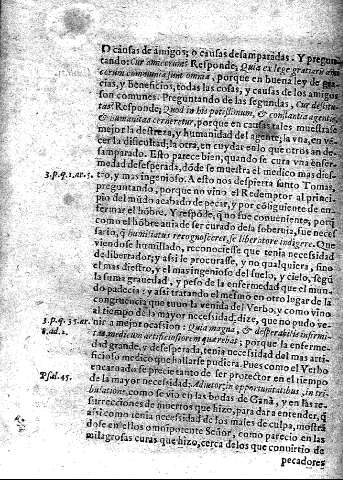 O causas de amigos; o causas desamparadas. Y pregun
tando: Cur amicorum? Responde; Quia ex lege gratiarum
corum communia sunt omnia, porque en buena ley de gra
cias, y beneficios, todas las cosas, y causas de los amigos
son comunes. Preguntando de las segundas, Cur destitu
tas? Responde; Quod in his potissimum, & constantia agentis
& humanitas cerneretur, porque en causas tales muestrase
mejor la destreza, y humanidad del agente; la vna, en vé
cer la dificultad; la otra, en cuydar en lo que otros an de-
samparado. Esto parece bien, quando se cura vna enfer-
medad desesperada, dóde se muestra el medico mas dies-
3.p.q.1.ar.5. tro, y mas ingenioso. A esto nos despierta santo Tomas,
preguntando, porque no vino el Redemptor al princi-
pio del múdo acabado de pecar, y por cósiguiente de en-
fermar el hóbre. Y respóde, q no fue conveniente, porq
como el hóbre auia de ser curado de la soberuia, fue neces
sario, q humiliatus recognosceret, se liberatore indigere. Que
viendose humillado, reconociesse que tenia necessidad
de libertador; y assi le procurasse, y no qualquiera, sino
el mas diestro, y el mas ingenioso del suelo, y cielo, segú
la suma grauedad, y peso de la enfermedad que el mun-
do padecia: y assi tratando el mesmo en otro lugar de la
congruencia que tuuo la venida del Verbo, y como vino
al tiempo de la mayor necessidad, dize, que no pudo ve-
3.p.q.35.ar. nir a mejor ocassion: Quia magna, & desperabilis infirmi-
8.ad.2. tas medicum artificiosiorem quærebat; porque la enferme-
dad grande, y desesperada, tenia necessidad del mas arti-
ficioso medico que hallarse pudiera. Pues como el Verbo
encarnado se precie tanto de ser protector en el tiempo
Psal.45. de la mayor necessidad: Adiutor in opportunitatibus, in tri-
bulatione, como se vio en las bodas de Caná, y en las re-
surrecciones de muertos que hizo, para dara entender, q
assi como tenia necessidad de los males de culpa, mostrá
dose en ellos omnipotente Señor, como parecio en las
milagrosas curas que hizo, cerca de los que conuirtio de
pecadores